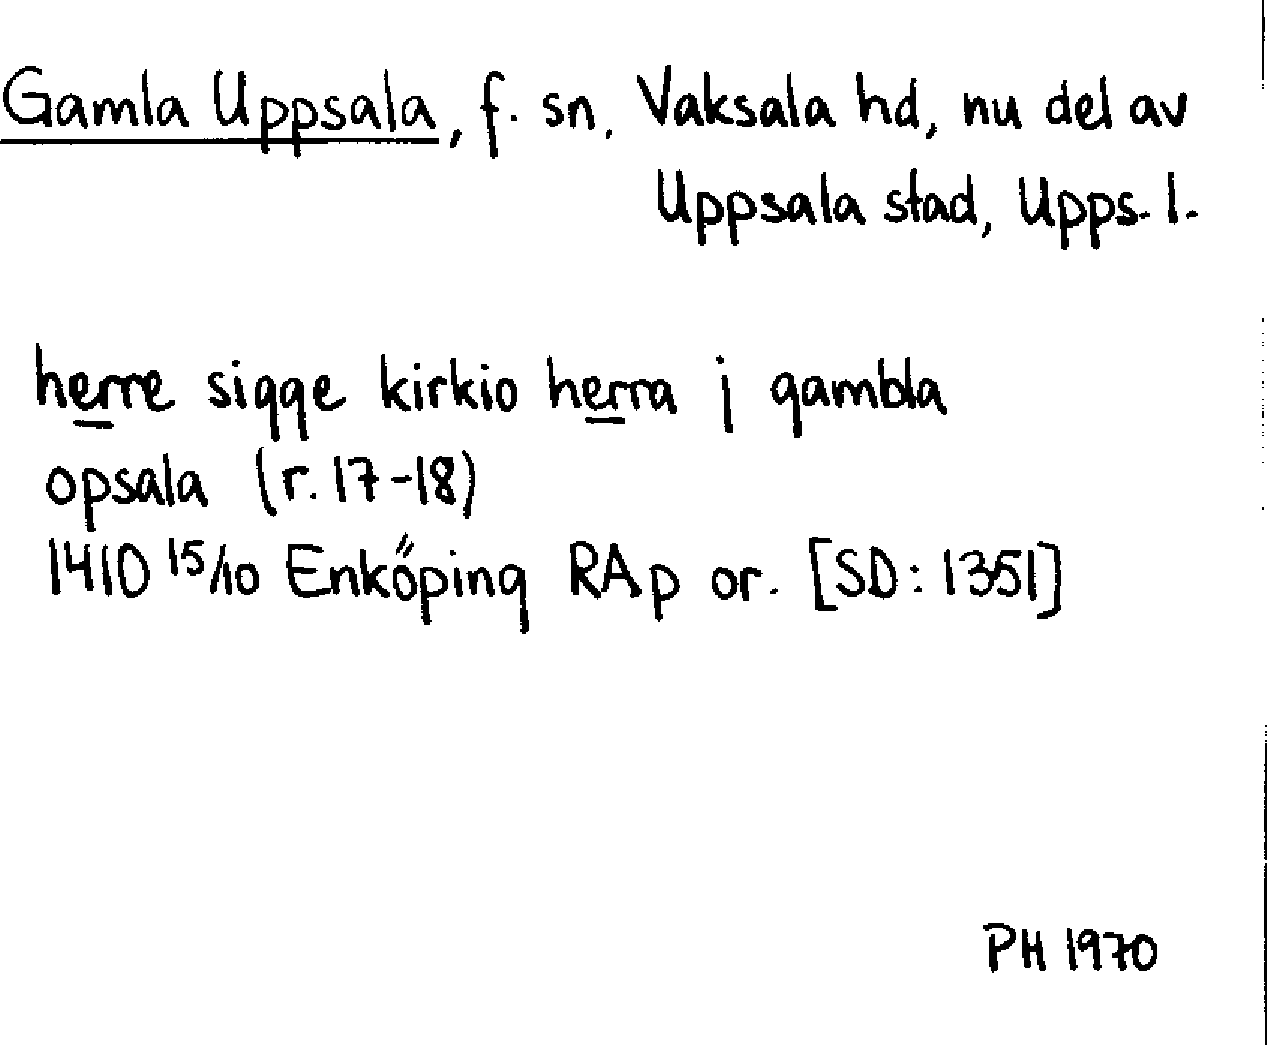 Gamla Uppsala, f. sn, Vaksala hd, nu del av
Uppsala stad, Upps. l.
herre sigge kirkio herra j gambla
opsala (r. 17-18)
1410 15/10 Enköping RAp or. [SD: 1351]
PH 1970